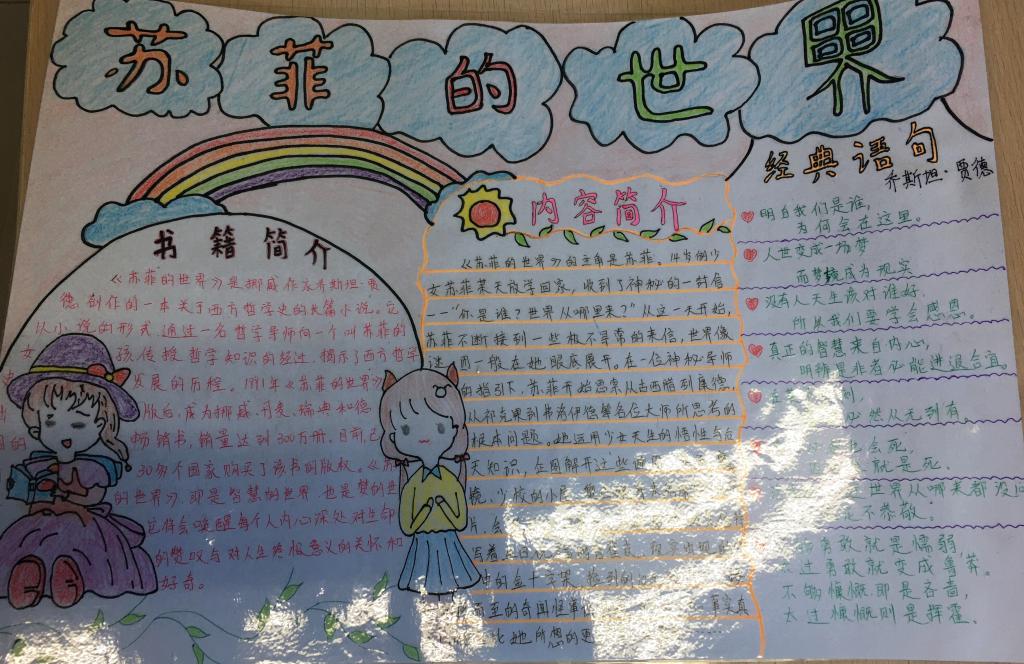 苏菲的世界
书籍简介
《苏菲的世界》是挪威作家乔斯坦·贾
德创作的一本关于西方哲学史的长篇小说。它
以小说的形式,通过一名哲学导师向一个叫苏菲的
女孩传授哲学知识的经过,揭示了西方哲学
发展的历程。1991年《苏菲的世界》
版后,成为挪威、丹麦、瑞典和德
的畅销书,销量达到300万册。目前,已
30多个国家购买了该书的版权。《苏
的世界》,即是智慧的世界,也是梦的世
它将会唤醒每个人内心深处对生命
的赞叹与对人生终极意义的关怀和
好奇。
内容简介
《苏菲的世界》的主角是苏菲。14岁的少
女苏菲某天放学回家,收到了神秘的一封信
——“你是谁?世界从哪里来?”从这一天开始,
苏菲不断接到一些极不寻常的来信,世界像
谜团一般在她眼底展开。在一位神秘导师
的指引下,苏菲开始思索从古西腊到康德,
从祁克果到弗洛伊德等各位大师所思考的
根本问题。她运用少女天生的悟性与后
天知识,企图解开这些
镜,少校的小屋
片,会
写着生日
她的金十字架,捡到的
而至的奇闻怪事
事实真
比她所想的更
经典语句
乔斯坦·贾德
明白我们是谁,
为何会在这里。
人世变成一场梦
而梦境成为现实
没有人天生该对谁好,
所以我们要学会感恩。
真正的智慧来自内心,
明辨是非者必能进退合宜。
必然从无到有
也会死,
就是死。
世界从哪来都没问
不恭敬。
勇敢就是懦弱,
太过勇敢就变成鲁莽。
不够慷慨即是吝啬,
太过慷慨则是挥霍。